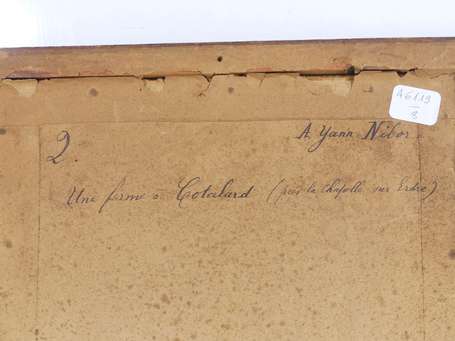 A6119
8
A Yann Nibor
2
Une ferme à Cotalard (près la Chapelle sur Erdre)